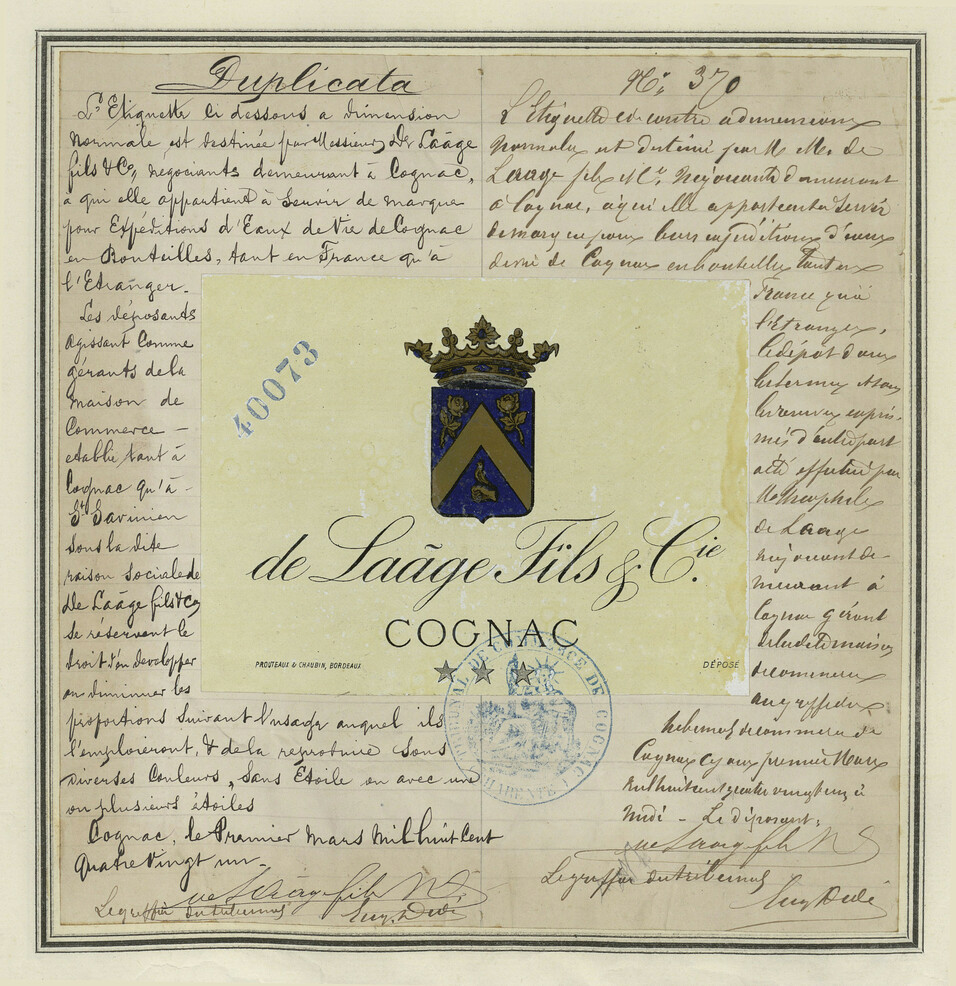 Duplicata
L'Etiquette Ci dessous a dimension
normale est destinée par Messieurs De Laâge
fils & Co, négociants demeurant à Cognac,
à qui elle appartient à Servir de marque
pour Expéditions d'Eaux de Vie de Cognac
en Bouteilles, tant en France qu'à
l'Etranger.
Les déposants
agissant Comme
gérants de la
maison de
Commerce -
etablie tant à
Cognac qu'à -
St Savinien
sous la dite
raison Sociale de
De Laâge fils & Co
se réservent le
droit d'en developper
ou diminuer les
proportions Suivant l'usage auquel ils
l'emploieront, & de la reproduire Sous
Diverses Couleurs, Sans Etoile ou avec une
ou plusieurs étoiles
Cognac, le Premier Mars Mil huit Cent
Quatre Vingt un -
Le greffier du tribunal
Eug. Dudé
40073
de Laâge Fils & Cie.
COGNAC
PROUTEAUX & CHAUBIN, BORDEAUX
DÉPOSÉ
TRIBUNAL DE COMMERCE DE COGNAC
CHARENTE
No. 370
L'Etiquette ci contre a dimensions
Normales est destiné par M Mrs. de
Laage fils & Cie. Négociants demeurant
à Cognac, à qui elle appartient à Servir
de marque pour leurs expéditions d'eaux
de vie de Cognac en bouteilles tant en
France qu'à
l'étranger,
le dépot d'aux
les termes
més d'autre part
a été effectué par
M Théophile
de Laage
négociant de-
meurant à
Cognac gérant
de la dite maison
de commerce
au greffe du
tribunal de commerce de
Cognac ce jour premier Mars
mil huit cent quatre vingt un à
midi - Le déposant,
de Laage fils
Le greffier du tribunal
Eug Dudé